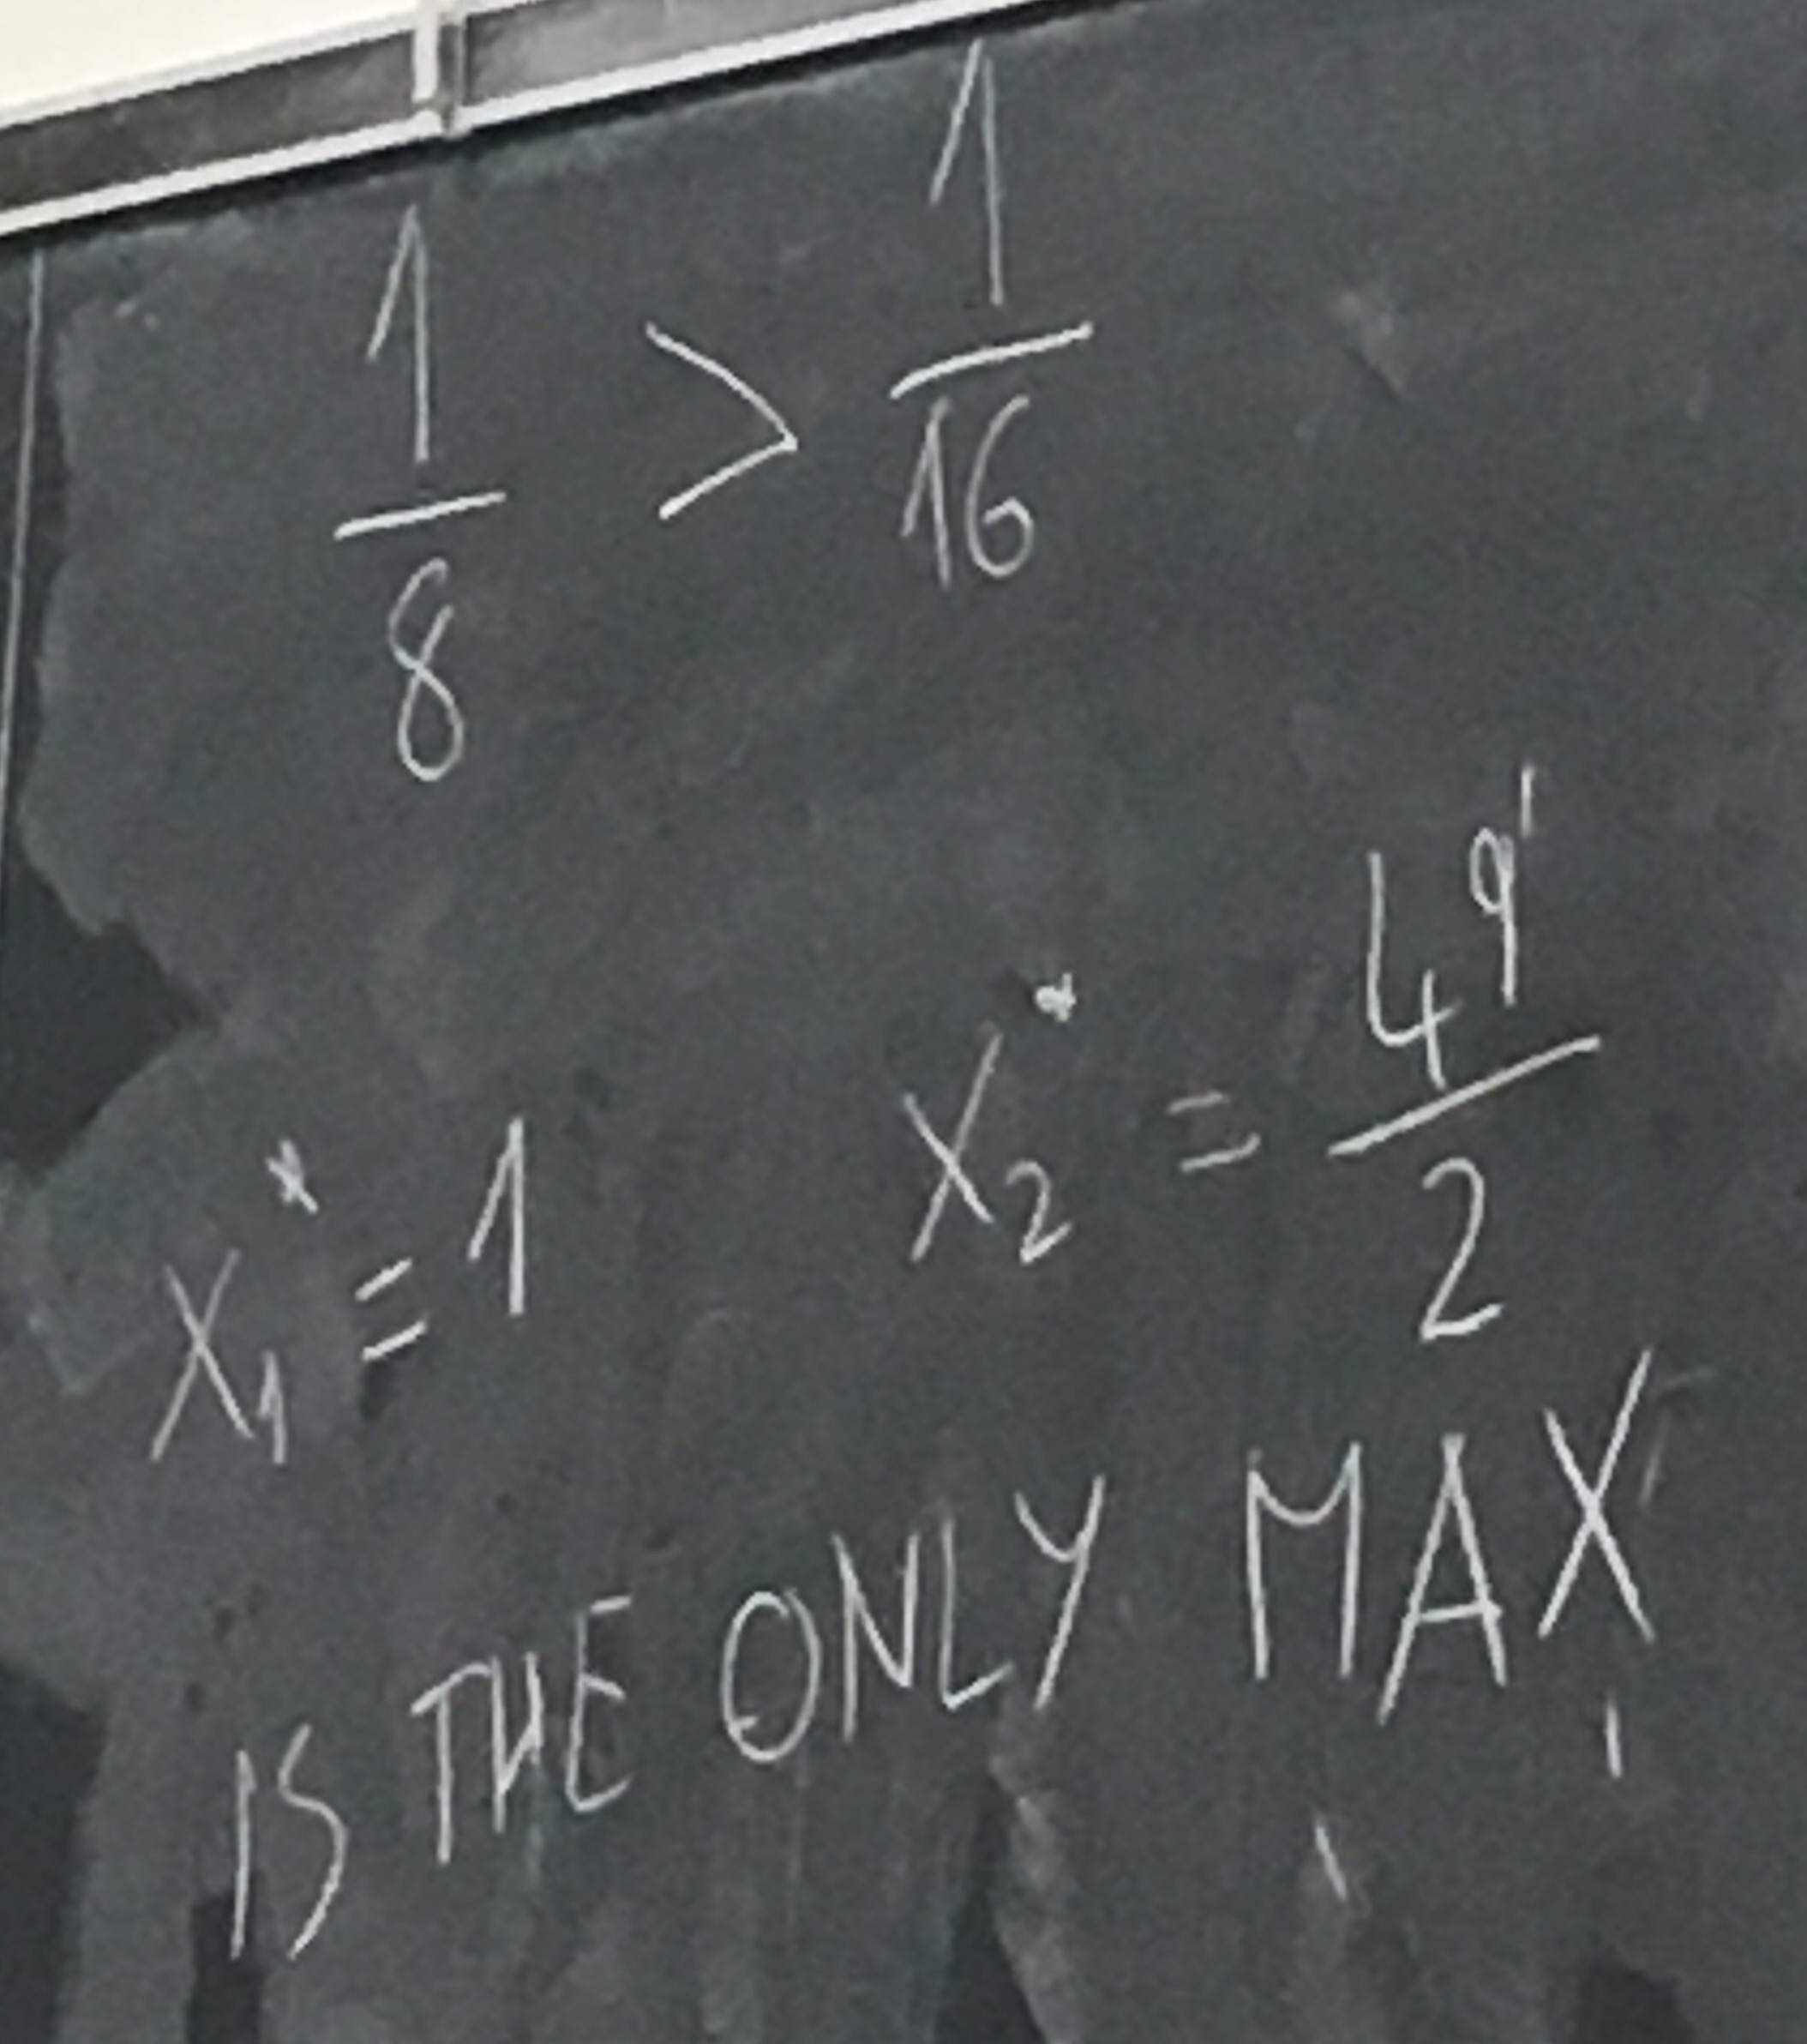 1/8 > 1/16
x₁* = 1 x₂* = 49/2
IS THE ONLY MAX